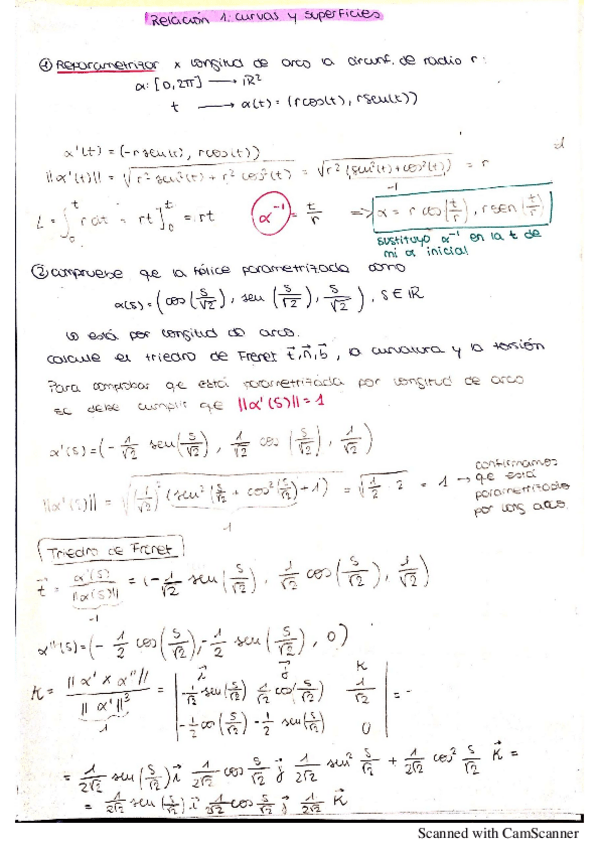 Relación 1: curvas y superficies
① Reparametrizar x longitud de arco la circunf. de radio r:
α: [0,2π] → ℝ²
t → α(t) = (rcos(t), rsen(t))
α'(t) = (-rsen(t), rcos(t))
||α'(t)|| = √(r² sen²(t) + r² cos²(t)) = √(r² (sen²(t)+cos²(t))) = r
1
L = ∫₀ᵗ r dt = rt]₀ᵗ = rt α⁻¹ = t/r ⇒ α = r cos(t/r), r sen(t/r)
sustituyo α⁻¹ en la t de
mi α inicial
② compruebe qe la hélice parametrizada como
α(s) = (cos(s/√2), sen(s/√2), s/√2), s∈ℝ
lo está por longitud de arco.
calcule el triedro de Frenet t⃗, n⃗, b⃗, la curvatura y la torsión
Para comprobar qe está parametrizada por longitud de arco
se debe cumplir qe ||α'(s)|| = 1
α'(s) = (-1/√2 sen(s/√2), 1/√2 cos(s/√2), 1/√2)
||α'(s)|| = √((1/√2)² (sen²(s/√2 + cos²(s/√2) + 1)) = √(1/2 · 2) = 1 → confirmamos
qe está
parametrizada
por long arco.
1
Triedro de Frenet
t⃗ = α'(s)/||α(s)|| = (-1/√2 sen(s/√2), 1/√2 cos(s/√2), 1/√2)
1
α''(s) = (-1/2 cos(s/√2), -1/2 sen(s/√2), 0)
i⃗ j⃗ K
K = ||α' × α''||/||α'||³ = | -1/√2 sen(s/√2) 1/√2 cos(s/√2) 1/√2 | =
1
| -1/2 cos(s/√2) -1/2 sen(s/√2) 0 |
= 1/2√2 sen(s/√2) i⃗ 1/2√2 cos s/√2 j⃗ 1/2√2 sen² s/√2 + 1/2√2 cos² s/√2 K⃗ =
= 1/2√2 sen(s/√2) i⃗ 1/2√2 cos s/√2 j⃗ 1/2√2 K⃗
Scanned with CamScanner